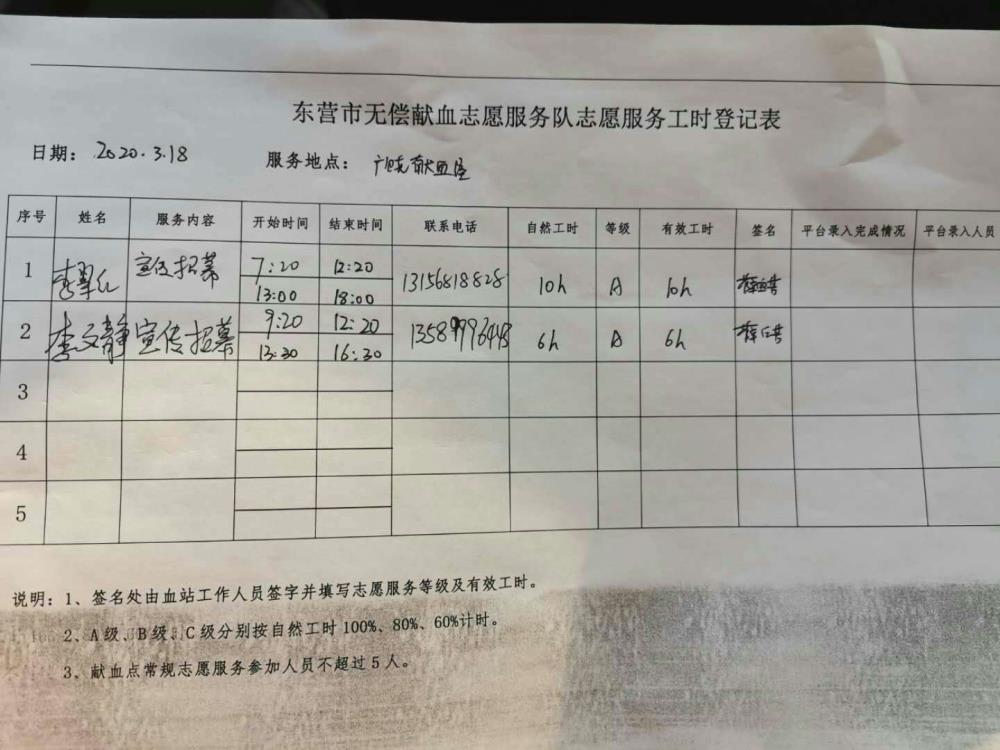 东营市无偿献血志愿服务队志愿服务工时登记表
日期： 2020.3.18 服务地点： 广饶献血屋
序号 姓名 服务内容 开始时间 结束时间 联系电话 自然工时 等级 有效工时 签名 平台录入完成情况 平台录入人员
1 李翠红 宣传招募 7:20 12:20 13156818828 10h A 10h
13:00 18:00
2 李文静 宣传招募 9:20 12:20 6h A 6h
13:30 16:30
3
4
5
说明：1、签名处由血站工作人员签字并填写志愿服务等级及有效工时。
2、A级、B级、C级分别按自然工时100%、80%、60%计时。
3、献血点常规志愿服务参加人员不超过5人。